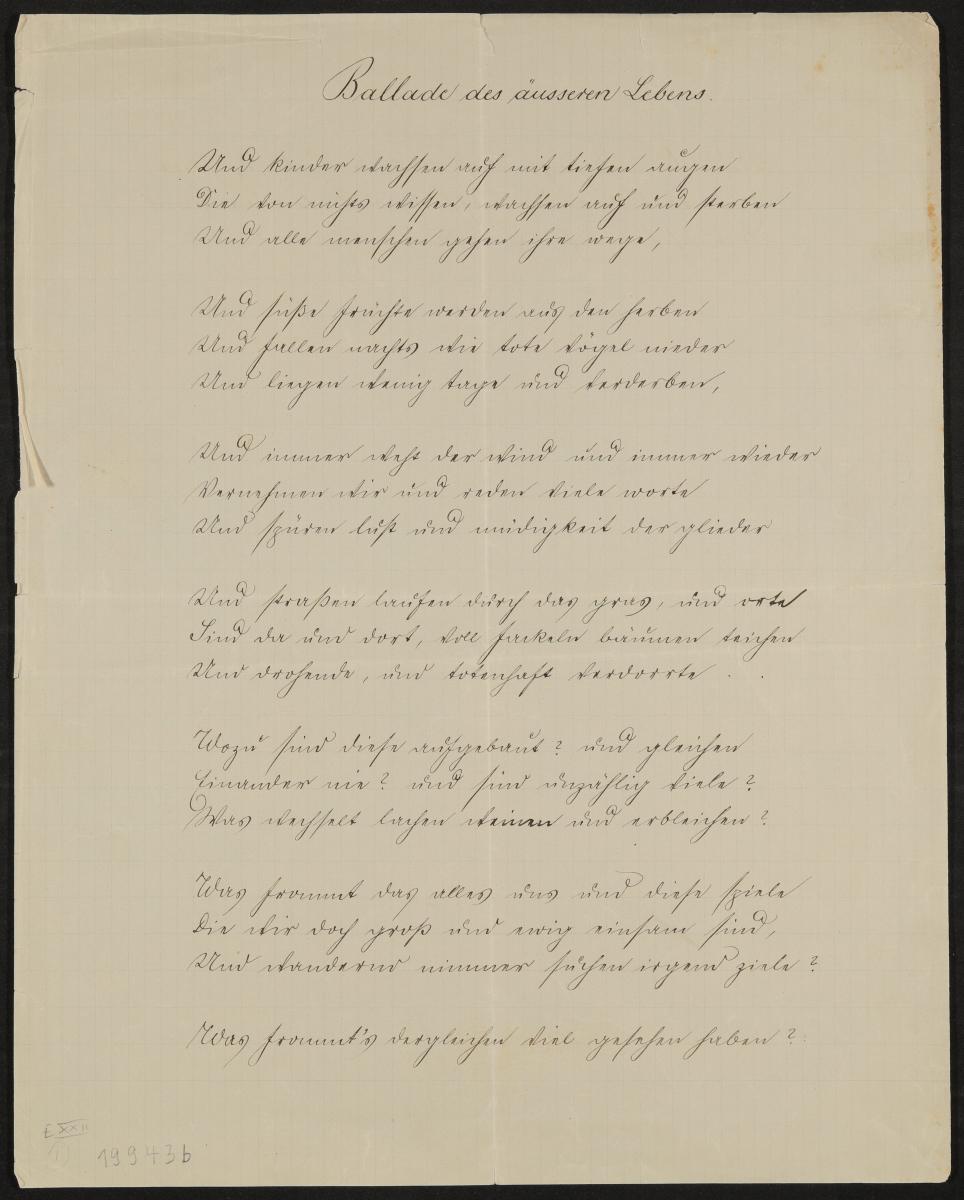 Ballade des äusseren Lebens.
Und kinder wachsen auf mit tiefen augen
Die von nichts wissen, wachsen auf und sterben
Und alle menschen gehen ihre wege,
Und süße früchte werden aus den herben
Und fallen nachts wie tote vögel nieder
Und liegen wenig tage und verderben,
Und immer weht der wind und immer wieder
Vernehmen wir und reden viele worte
Und spüren lust und müdigkeit der glieder
Und straßen laufen durch das gras, und orte
Sind da und dort, voll fackeln bäumen teichen
Und drohende, und totenhaft verdorrte . .
Wozu sind diese aufgebaut? und gleichen
Einander nie? und sind unzählig viele?
Was wechselt lachen weinen und erbleichen?
Was frommt das alles uns und diese spiele
Die wir doch groß und ewig einsam sind,
Und wandernd nimmer suchen irgend ziele?
Was frommt's dergleichen viel gesehen haben?
E XXII
19943b